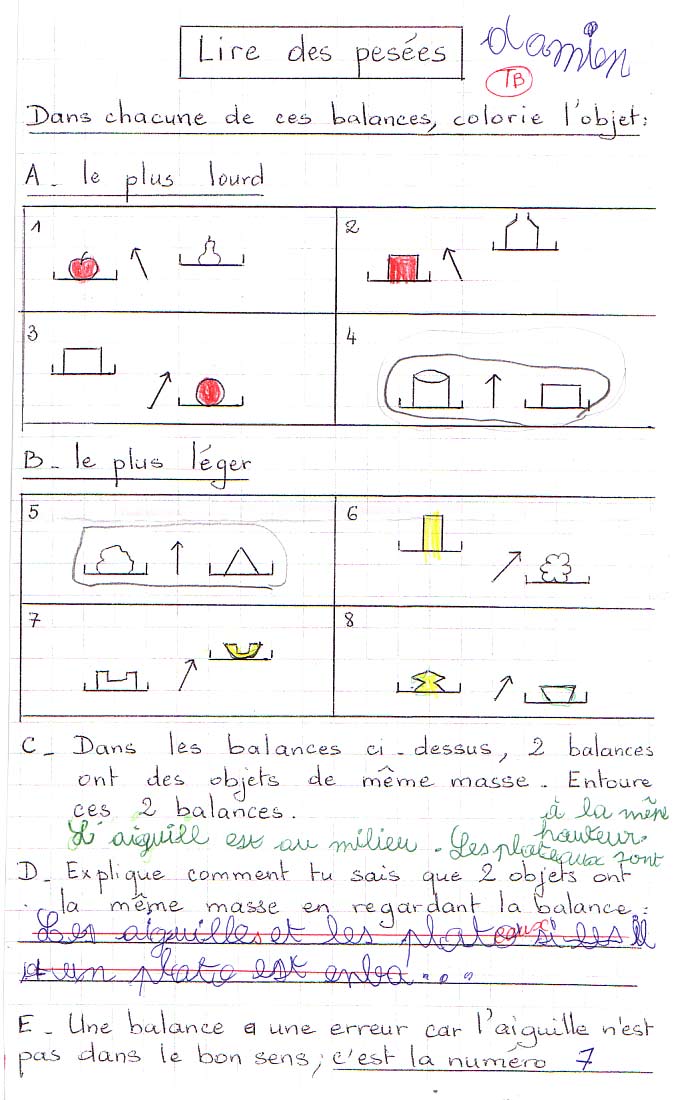 Lire des pesées
damien
TB
Dans chacune de ces balances, colorie l'objet :
A - le plus lourd
1
2
3
4
B - le plus léger
5
6
7
8
C - Dans les balances ci-dessus, 2 balances
ont des objets de même masse. Entoure
ces 2 balances.
L'aiguill est au milieu. Les plateaux sont
à la même
hauteur.
D - Explique comment tu sais que 2 objets ont
la même masse en regardant la balance :
Les aiguilles et les plateaux si les il
un plato est enba...
E - Une balance a une erreur car l'aiguille n'est
pas dans le bon sens, c'est la numéro 7